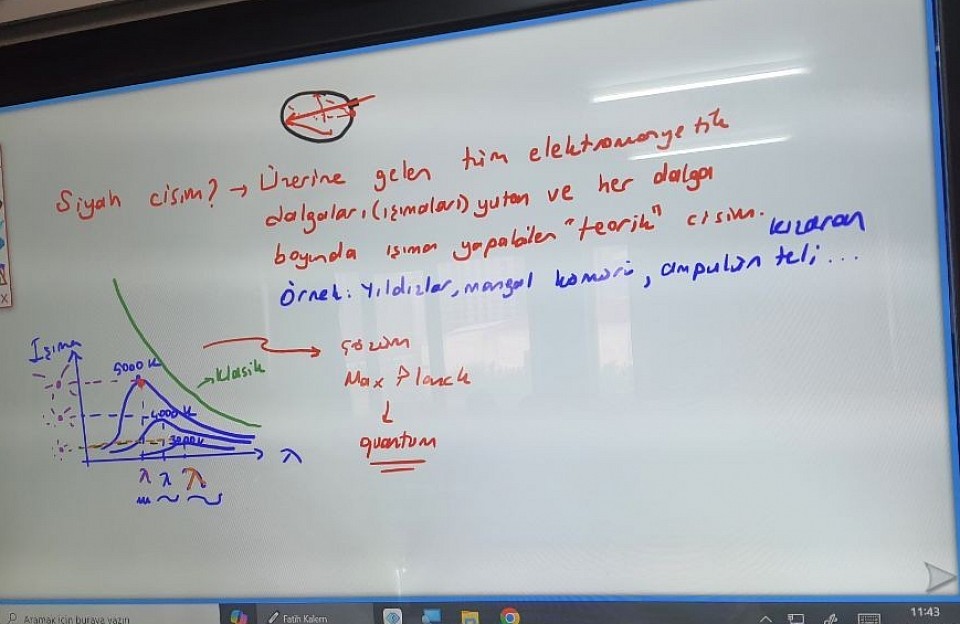 Siyah cisim? → Üzerine gelen tüm elektromanyetik
dalgaları (ışımaları) yutan ve her dalga
boyunda ışıma yapabilen "teorik" cisim.
kızaran
Örnek: Yıldızlar, mangal kömürü, ampulün teli...
Işıma
5000 K
4000 K
3000 K
→ Klasik
λ
λ λ λ
çözüm
Max Planck
↓
quantum
Aramak için buraya yazın
Fatih Kalem
11:43